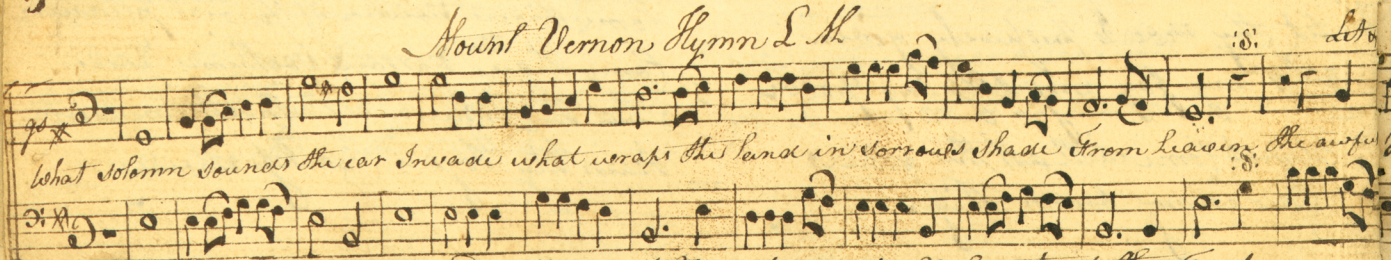 Mount Vernon Hymn L M
What solomn sounds the ear Invade what wraps the land in sorrows shade From heaven the awful